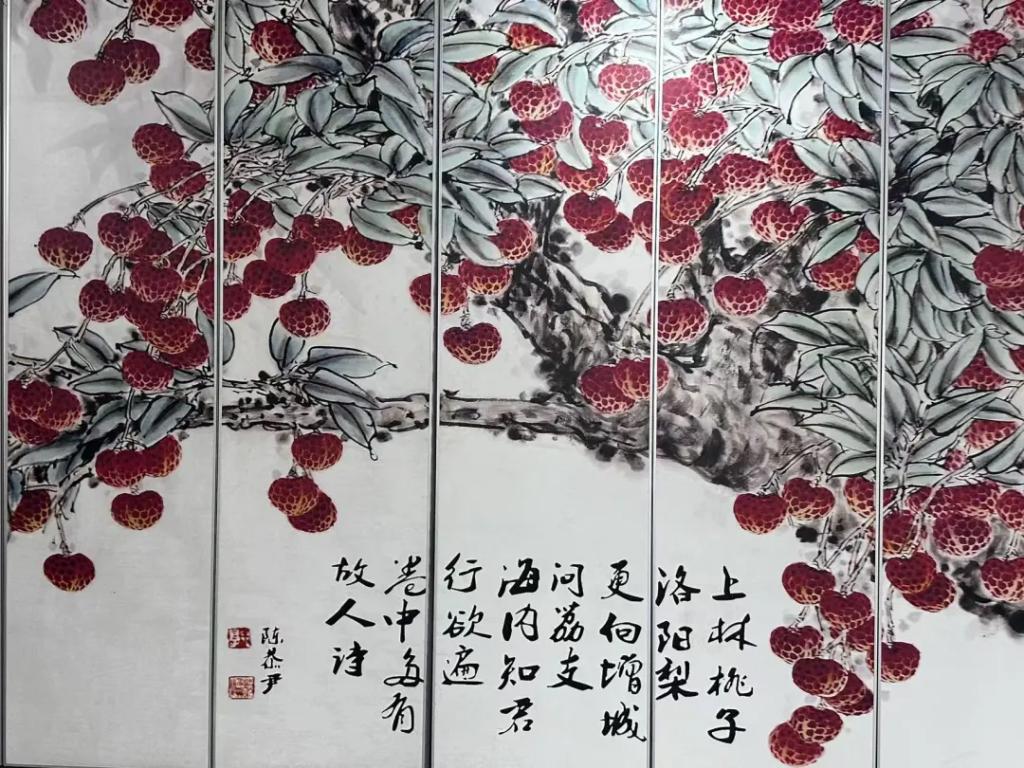 上林桃子
洛阳梨
更向增城
问荔支
海内知君
行欲遍
卷中多有
故人诗
陈恭尹